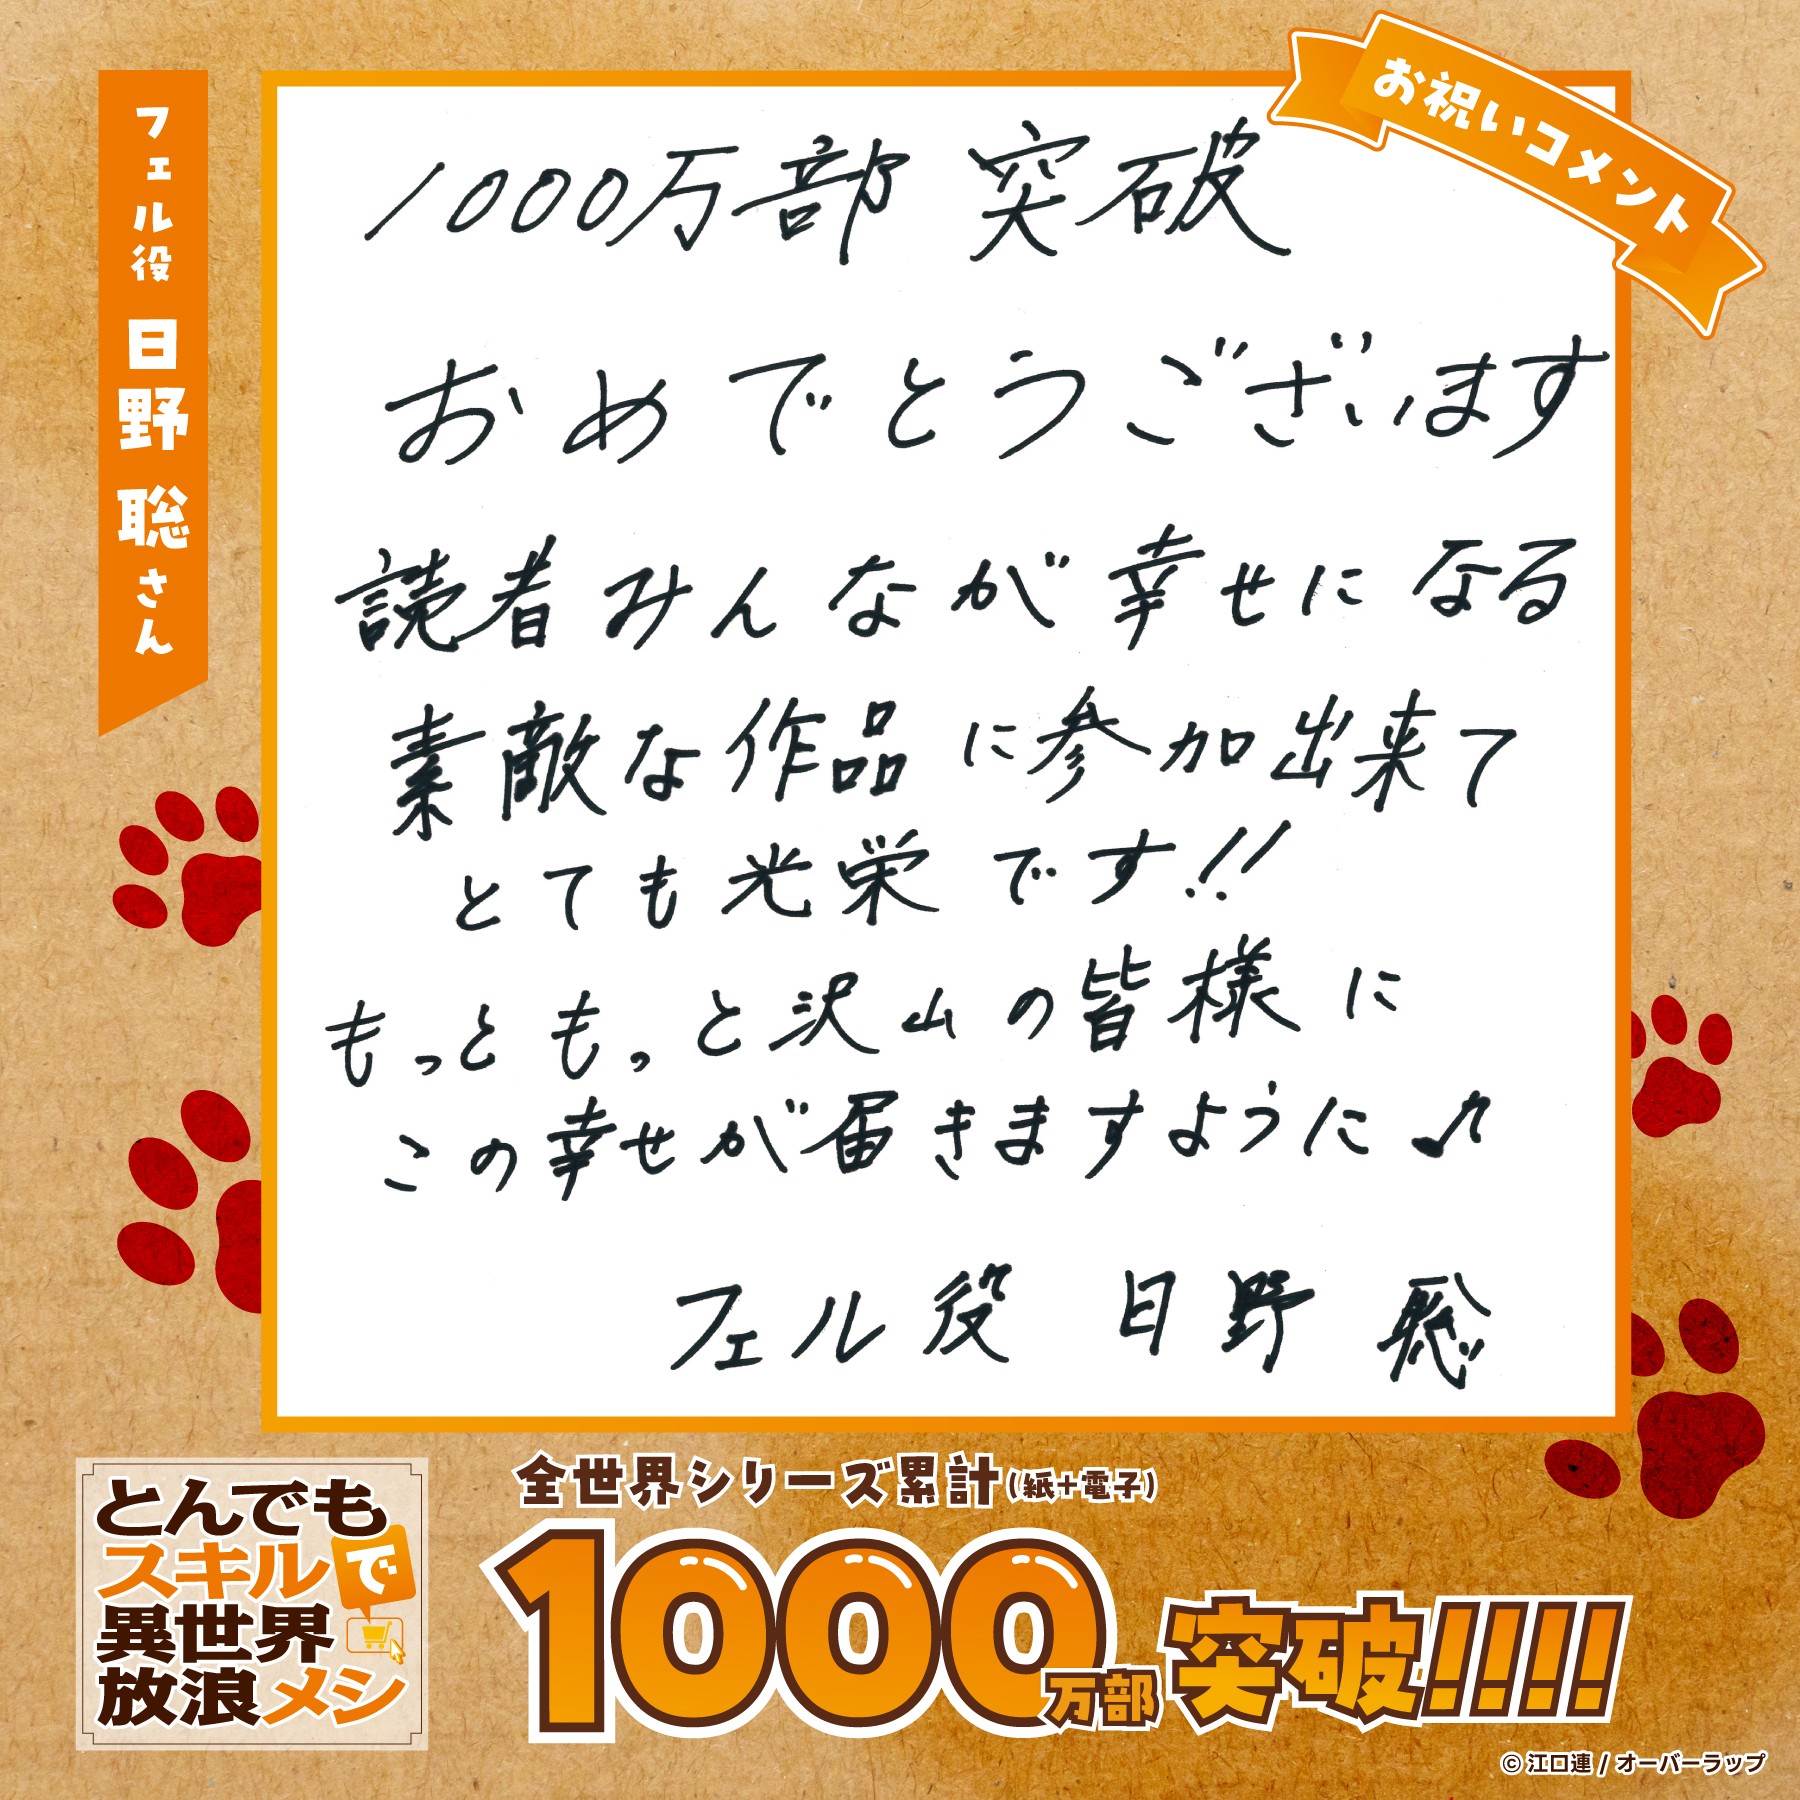 お祝いコメント
フェル役 日野 聡さん
1000万部 突破
おめでとうございます
読者みんなが幸せになる
素敵な作品に参加出来て
とても光栄です!!
もっともっと沢山の皆様に
この幸せが届きますように♪
フェル役 日野 聡
とんでも
スキルで
異世界
放浪メシ
全世界シリーズ累計(紙+電子)
1000万部 突破!!!!
© 江口連 / オーバーラップ